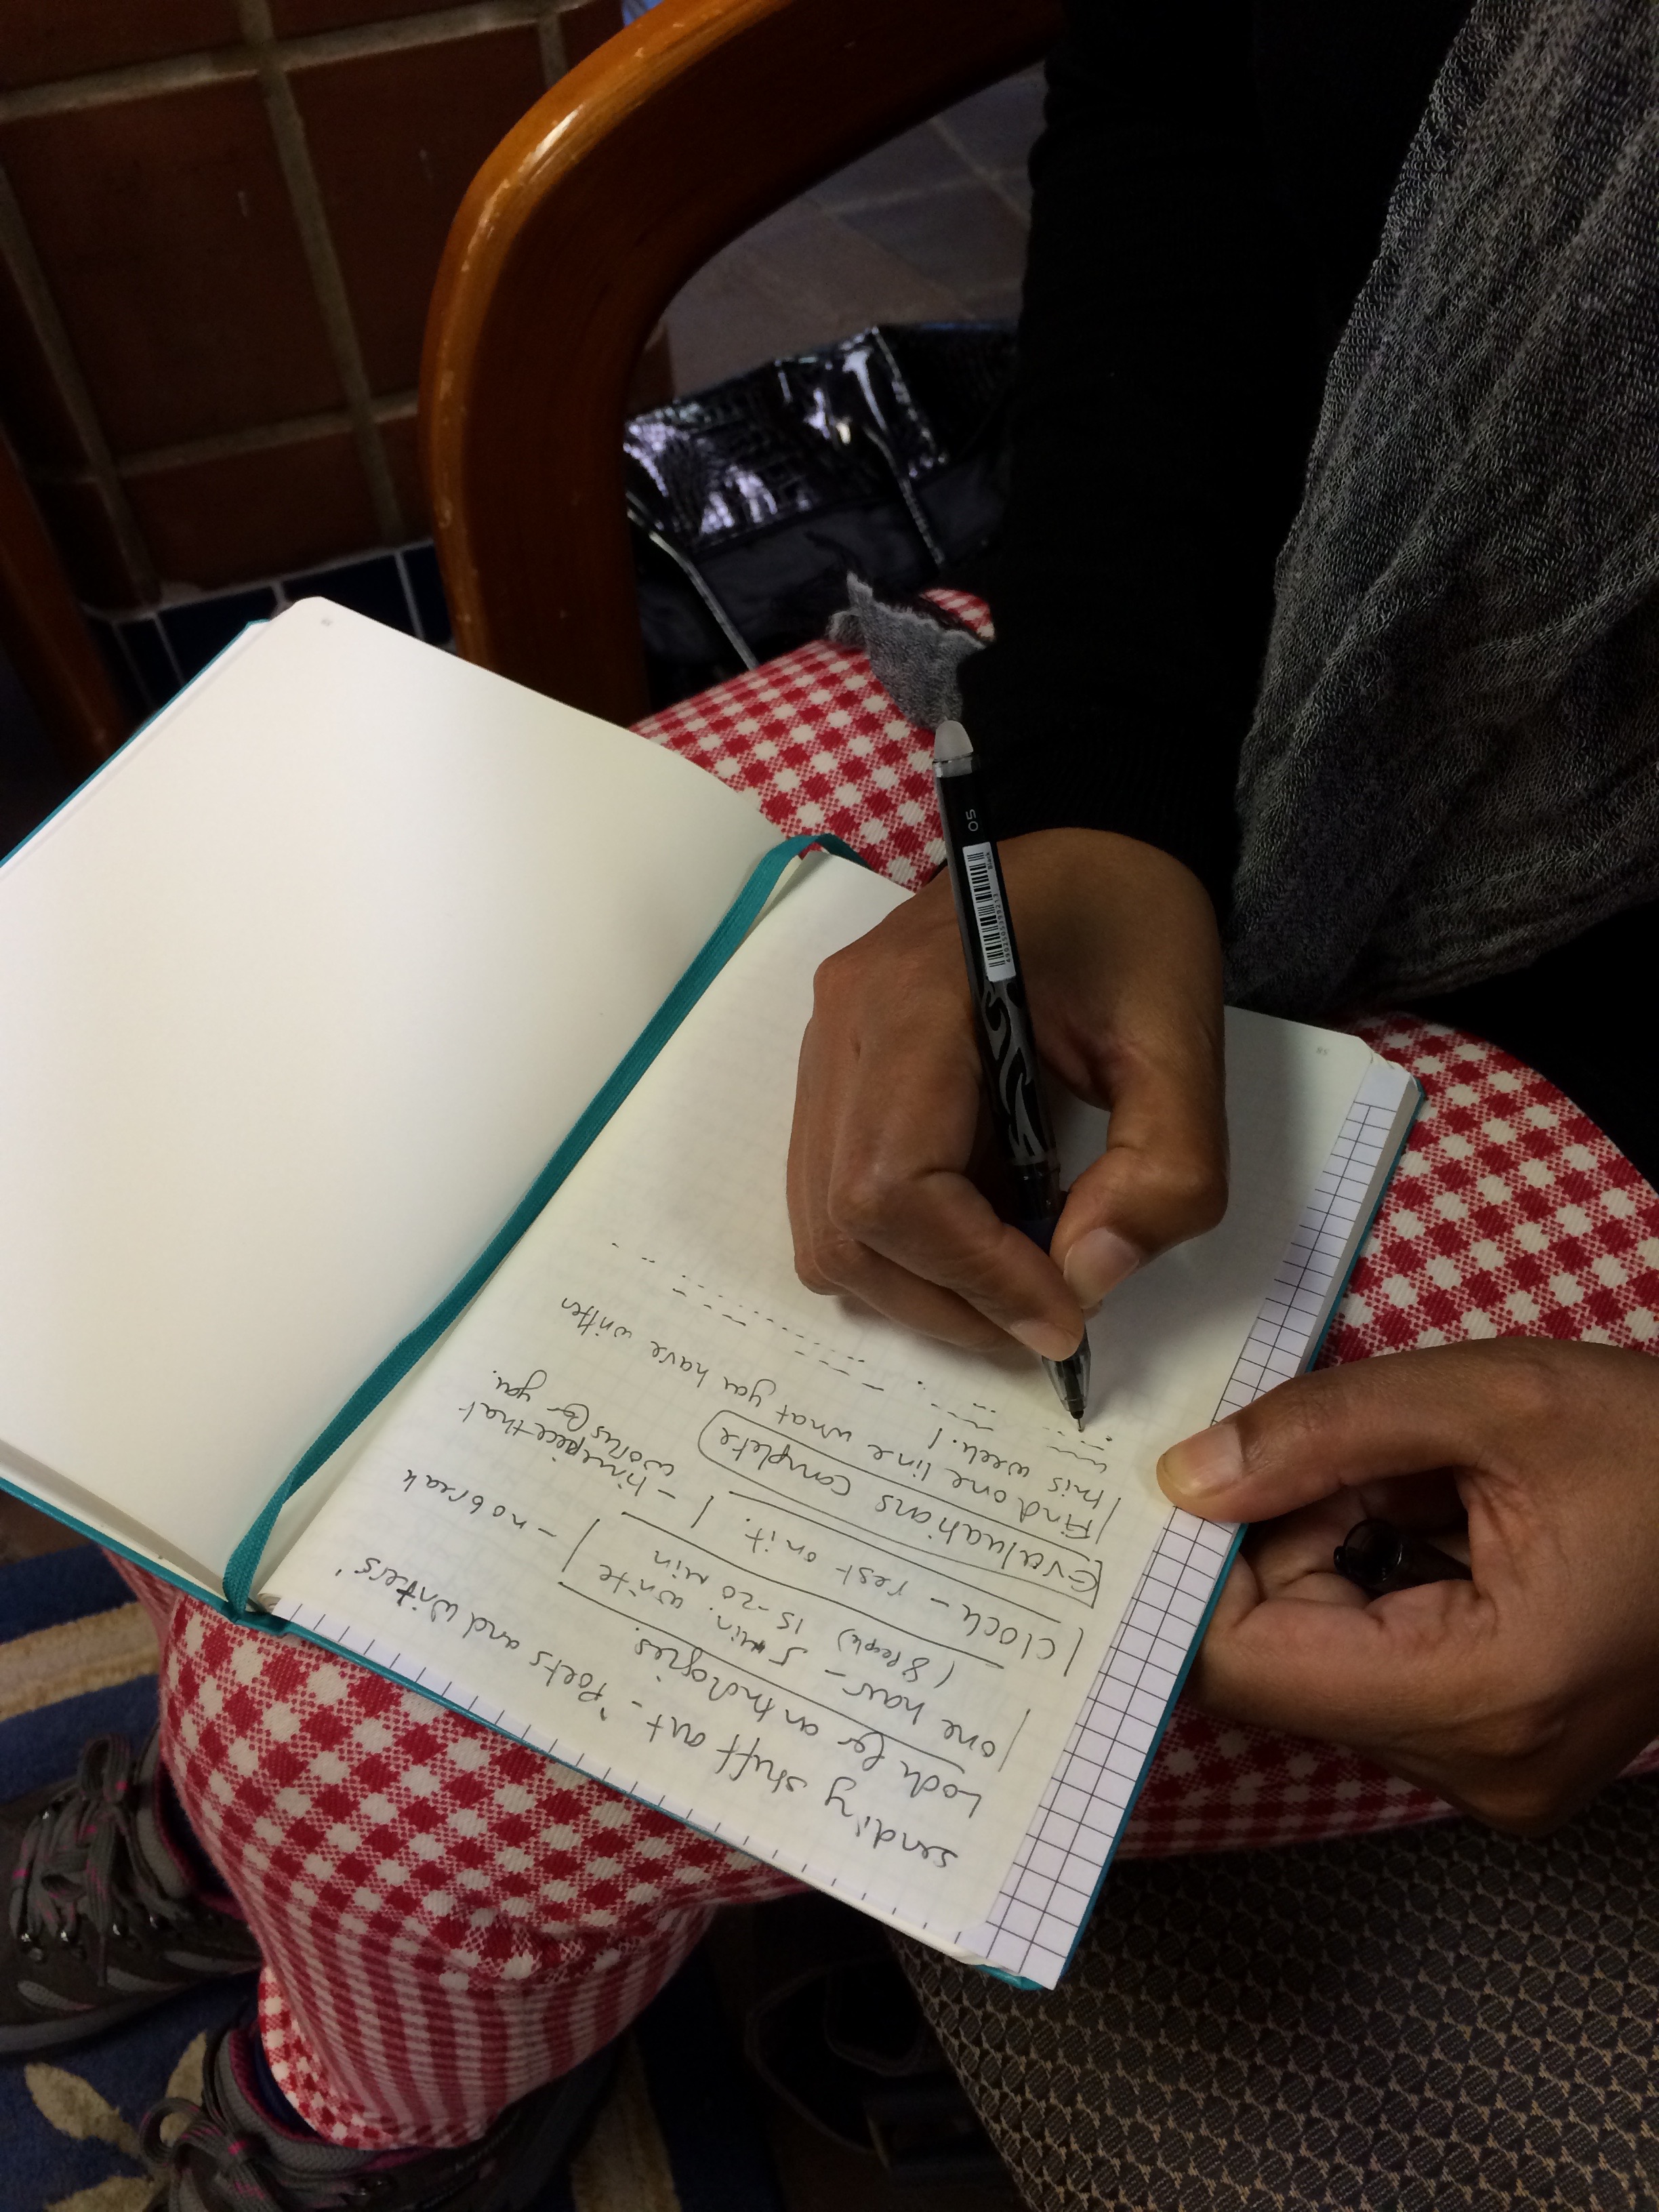 sending stuff out - "Poets and Writers"
Look for anthologies.
one hour - 5 min. write - no break
(8 people) 15-20 min
Clock - rest on it. - timepiece that
works for you.
Evaluations complete
Find one line what you have written
this week!
05
Black